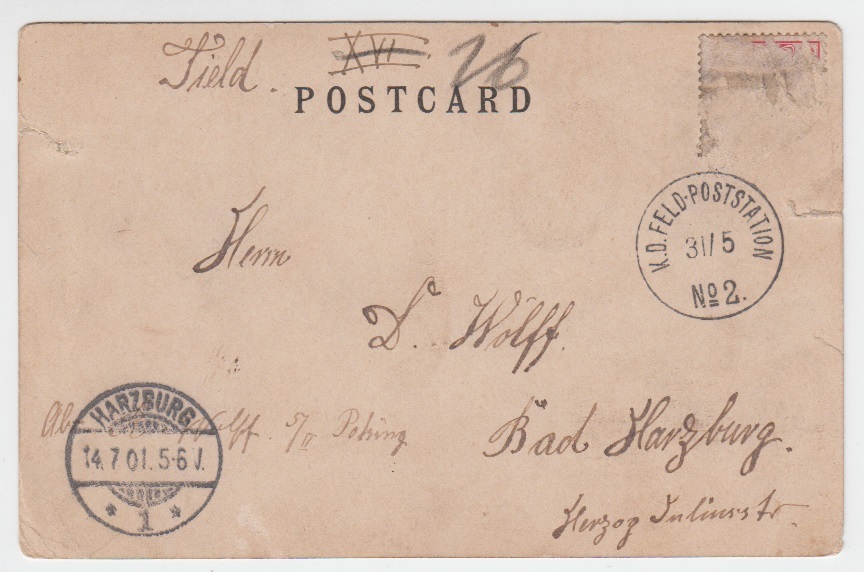 Field. XVI 26
POSTCARD
K.D. FELD-POSTSTATION
31/5
No 2.
Herrn
Dr. Wolff.
HARZBURG
14.7.01. 5-6 V.
* 1 *
Wolff. 5/II Peking
Bad Harzburg.
Herzog Juliusstr.